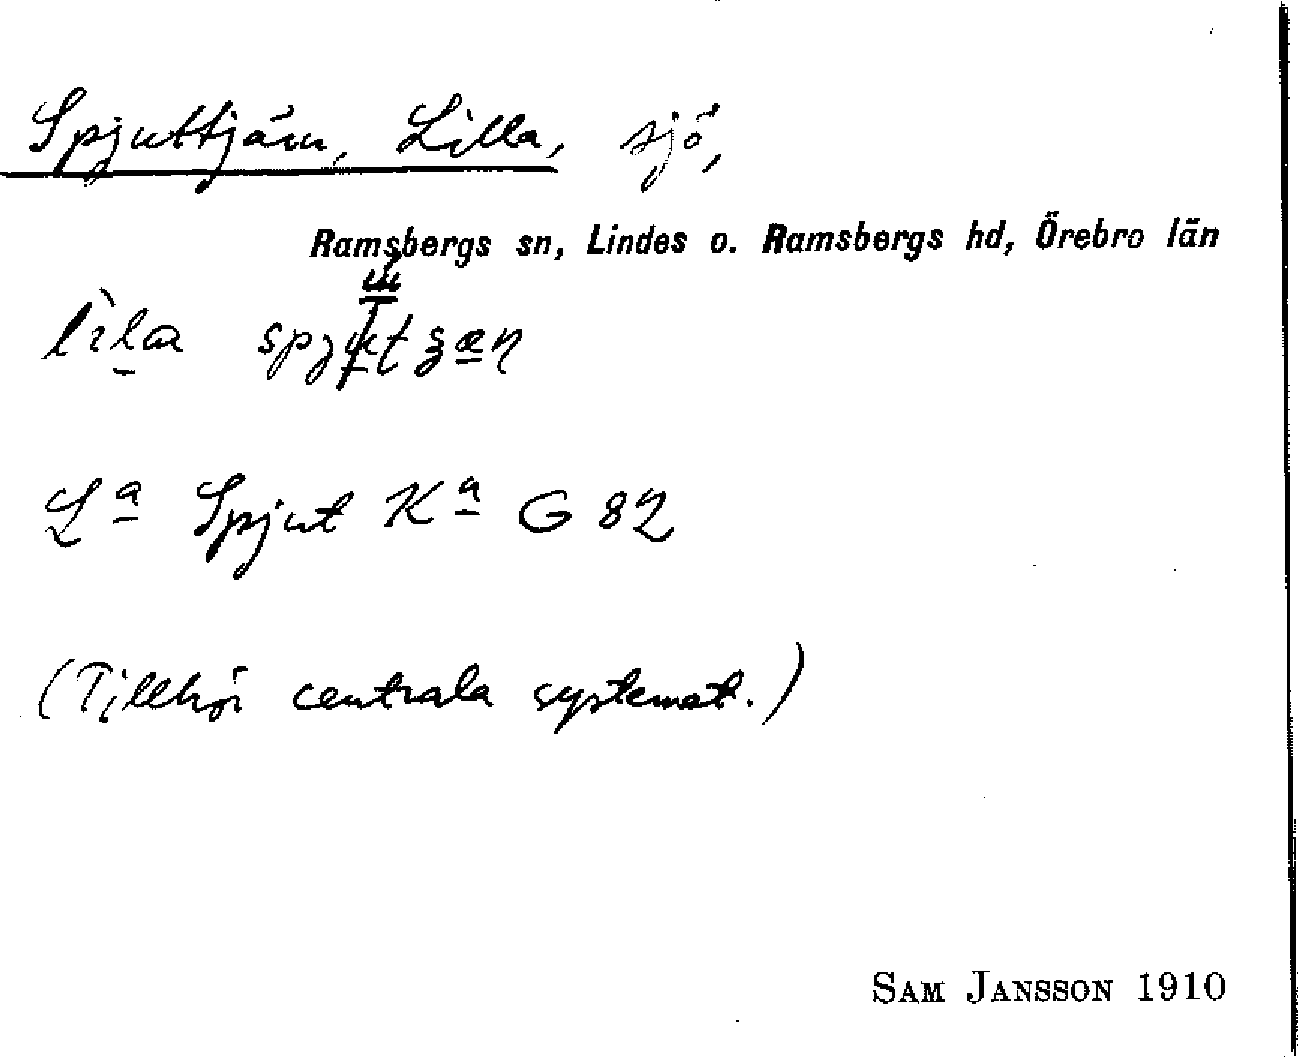 Spjuttjärn, Lilla, sjö,
Ramsbergs sn, Lindes o. Ramsbergs hd, Örebro län
lìla
Lª Spjut Kª G 82
(Tillhör centrala systemat.)
SAM JANSSON 1910